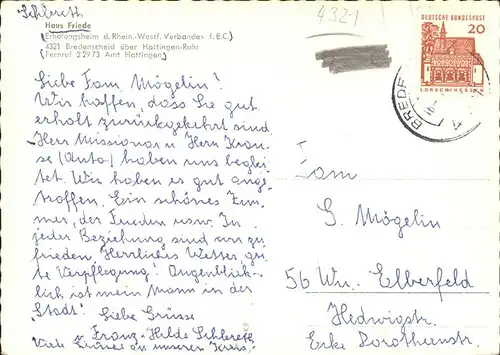 Schlereth
Haus Friede
(Erholungsheim d. Rhein.-Westf. Verbandes f. E.C.)
4321 Bredenscheid über Hattingen-Ruhr
(Fernruf 22973 Amt Hattingen)
Liebe Fam. Mögelin!
Wir hoffen, dass Sie gut
erholt zurückgekehrt sind.
Herr Missionar u. Herr Krau-
se (Auto) haben uns beglei-
tet. Wir haben es gut ange-
troffen. Ein schönes Zim-
mer, der Frieden usw. In
jeder Beziehung sind wir zu-
frieden. Herrliches Wetter, gu-
te Verpflegung! Augenblick-
lich ist mein Mann in der
Stadt! Liebe Grüsse
Franz + Hilde Schlereth
Viele Grüsse an unseren Kreis.
4321
DEUTSCHE BUNDESPOST
20
LORSCH/HESSEN
BREDE
Fam
G. Mögelin
56 Wu. Elberfeld
Hedwigstr.
Ecke Dorotheenstr.